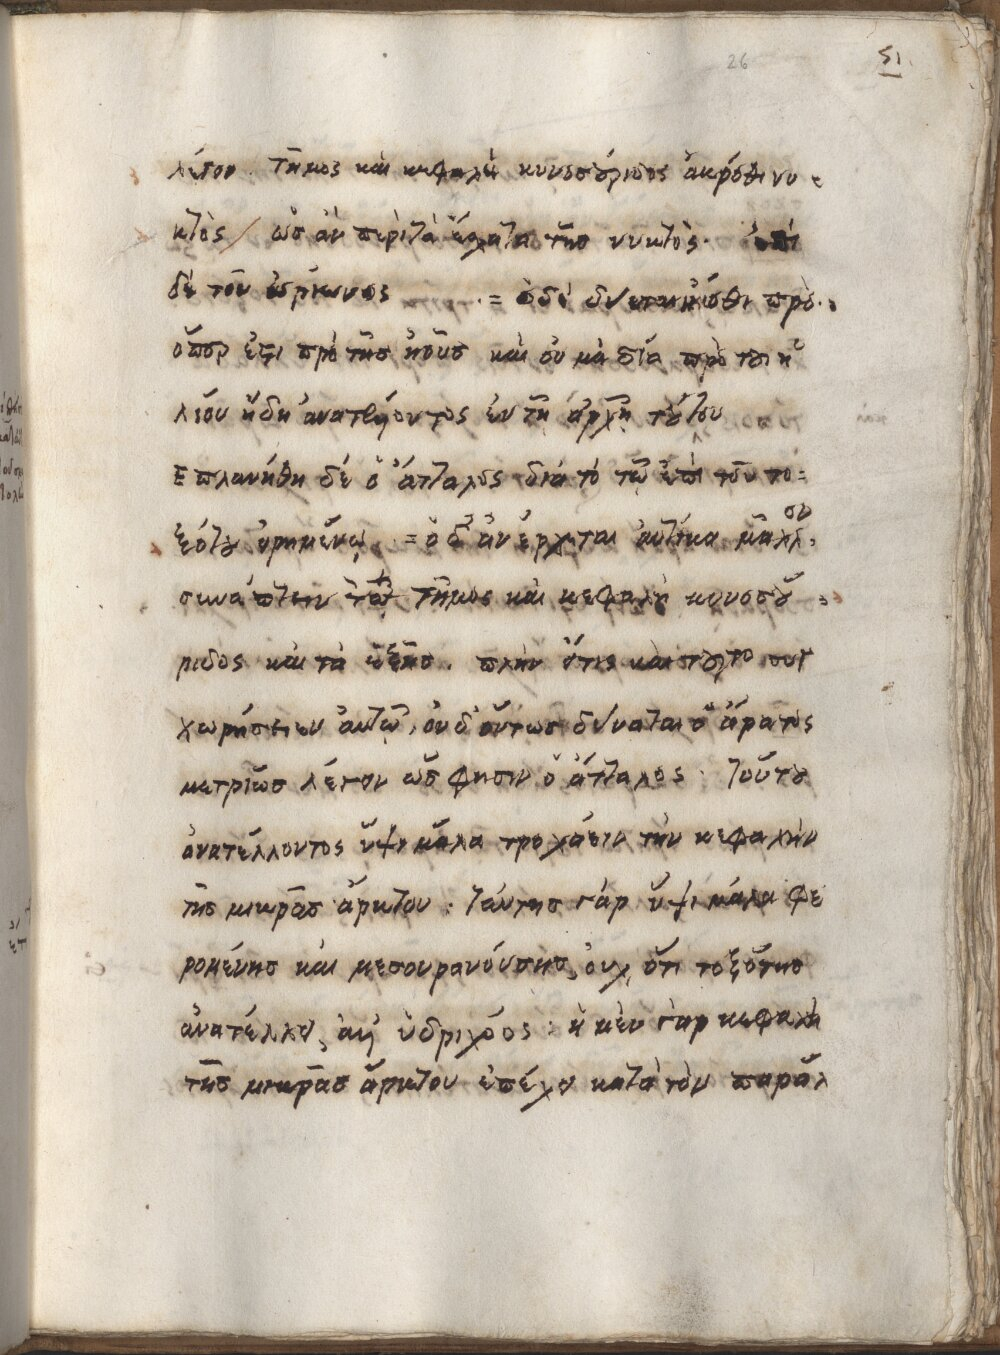 26
51
λέγον. τῆμος καὶ κεφαλὴ κυνοσούριδος ἀκρόθι νυ-
κτὸς / ὡς ἂν περὶ τὰ ἔσχατα τῆς νυκτὸς. ἐπὶ
δὲ τοῦ ὠρίωνος = ὁ δὲ δύεται ἠῶθι πρὸ.
ὅπερ ἐστι πρὸ τῆς ἠοῦς καὶ οὐ μὰ δία πρὸ τοῦ ἡ
λίου ἤδη ἀνατέλλοντος ἐν τῇ ἀρχῇ τούτου
Επλανήθη δὲ ὁ ἄτταλος διὰ τὸ τῷ ἐπὶ τοῦ το=
ξότου εἰρημένῳ = ὁ δ' ἀνέρχεται αὐτίκα μᾶλλον
συνάπτειν τὸ τῆμος καὶ κεφαλὴ κυνοσού
ριδος καὶ τὰ ἑξῆς. πλὴν ἔτις καὶ τοῦτο συγ
χωρήσειεν αὐτῷ, οὐδ' οὕτως δύναται ὁ ἄρατος
μετρίως λέγειν ὥς φησιν ὁ ἄτταλος. τούτου
ἀνατέλλοντος ὕψι μάλα τροχάειν τὴν κεφαλὴν
τῆς μικρᾶς ἄρκτου. ταύτης γὰρ ὕψι μάλα φε
ρομένης καὶ μεσουρανούσης, οὐχ ὅτι τοξότης
ἀνατέλλει, ἀλλ' ὑδριχόος. ἡ μὲν γὰρ κεφαλὴ
τῆς μικρᾶς ἄρκτου ἐπέχει κατὰ τὸν παράλ